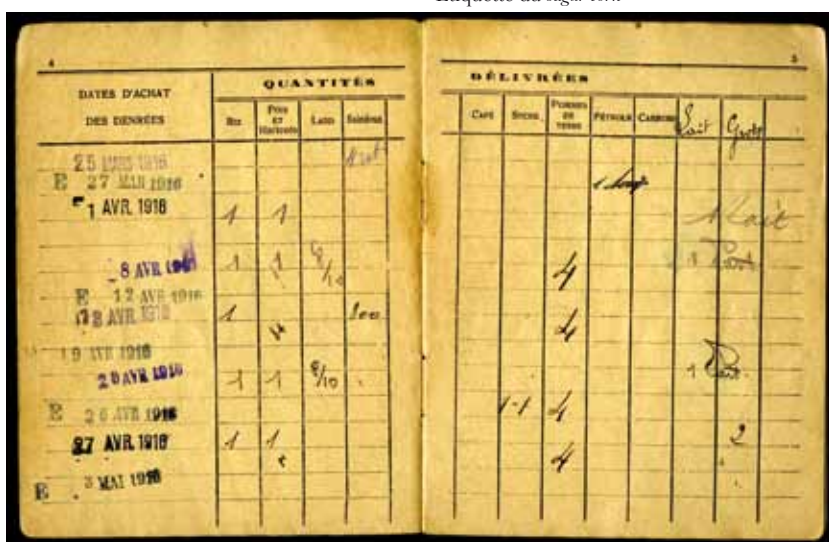 4
5
QUANTITÉS DÉLIVRÉES
DATES D'ACHAT
DES DENRÉES
Riz
Pois
ET
Haricots
Lard
Saindoux
CAFÉ
SUCRE
POMMES
DE
TERRE
PÉTROLE
CARBURE
Lait
25 MARS 1916
E 27 MAR 1916
1 AVR. 1916 1 1 1 Lait
8 AVR 1916 1 1 8/10 4 1
E 12 AVR 1916
18 AVR 1916 1 800 4
19 AVR 1916
20 AVR 1916 1 1 8/10 1
E 26 AVR 1916 1-1 4
27 AVR 1916 1 1 2
E 3 MAI 1916 4